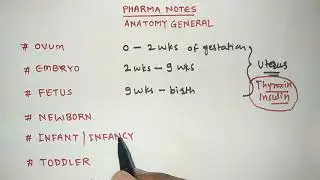 PHARMA NOTES
ANATOMY GENERAL
# OVUM 0 - 2 wks of gestation
# EMBRYO 2 wks - 9 wks
# FETUS 9 wks - birth
Uterus
Thyroxin
Insulin
# NEWBORN
# INFANT / INFANCY
# TODDLER